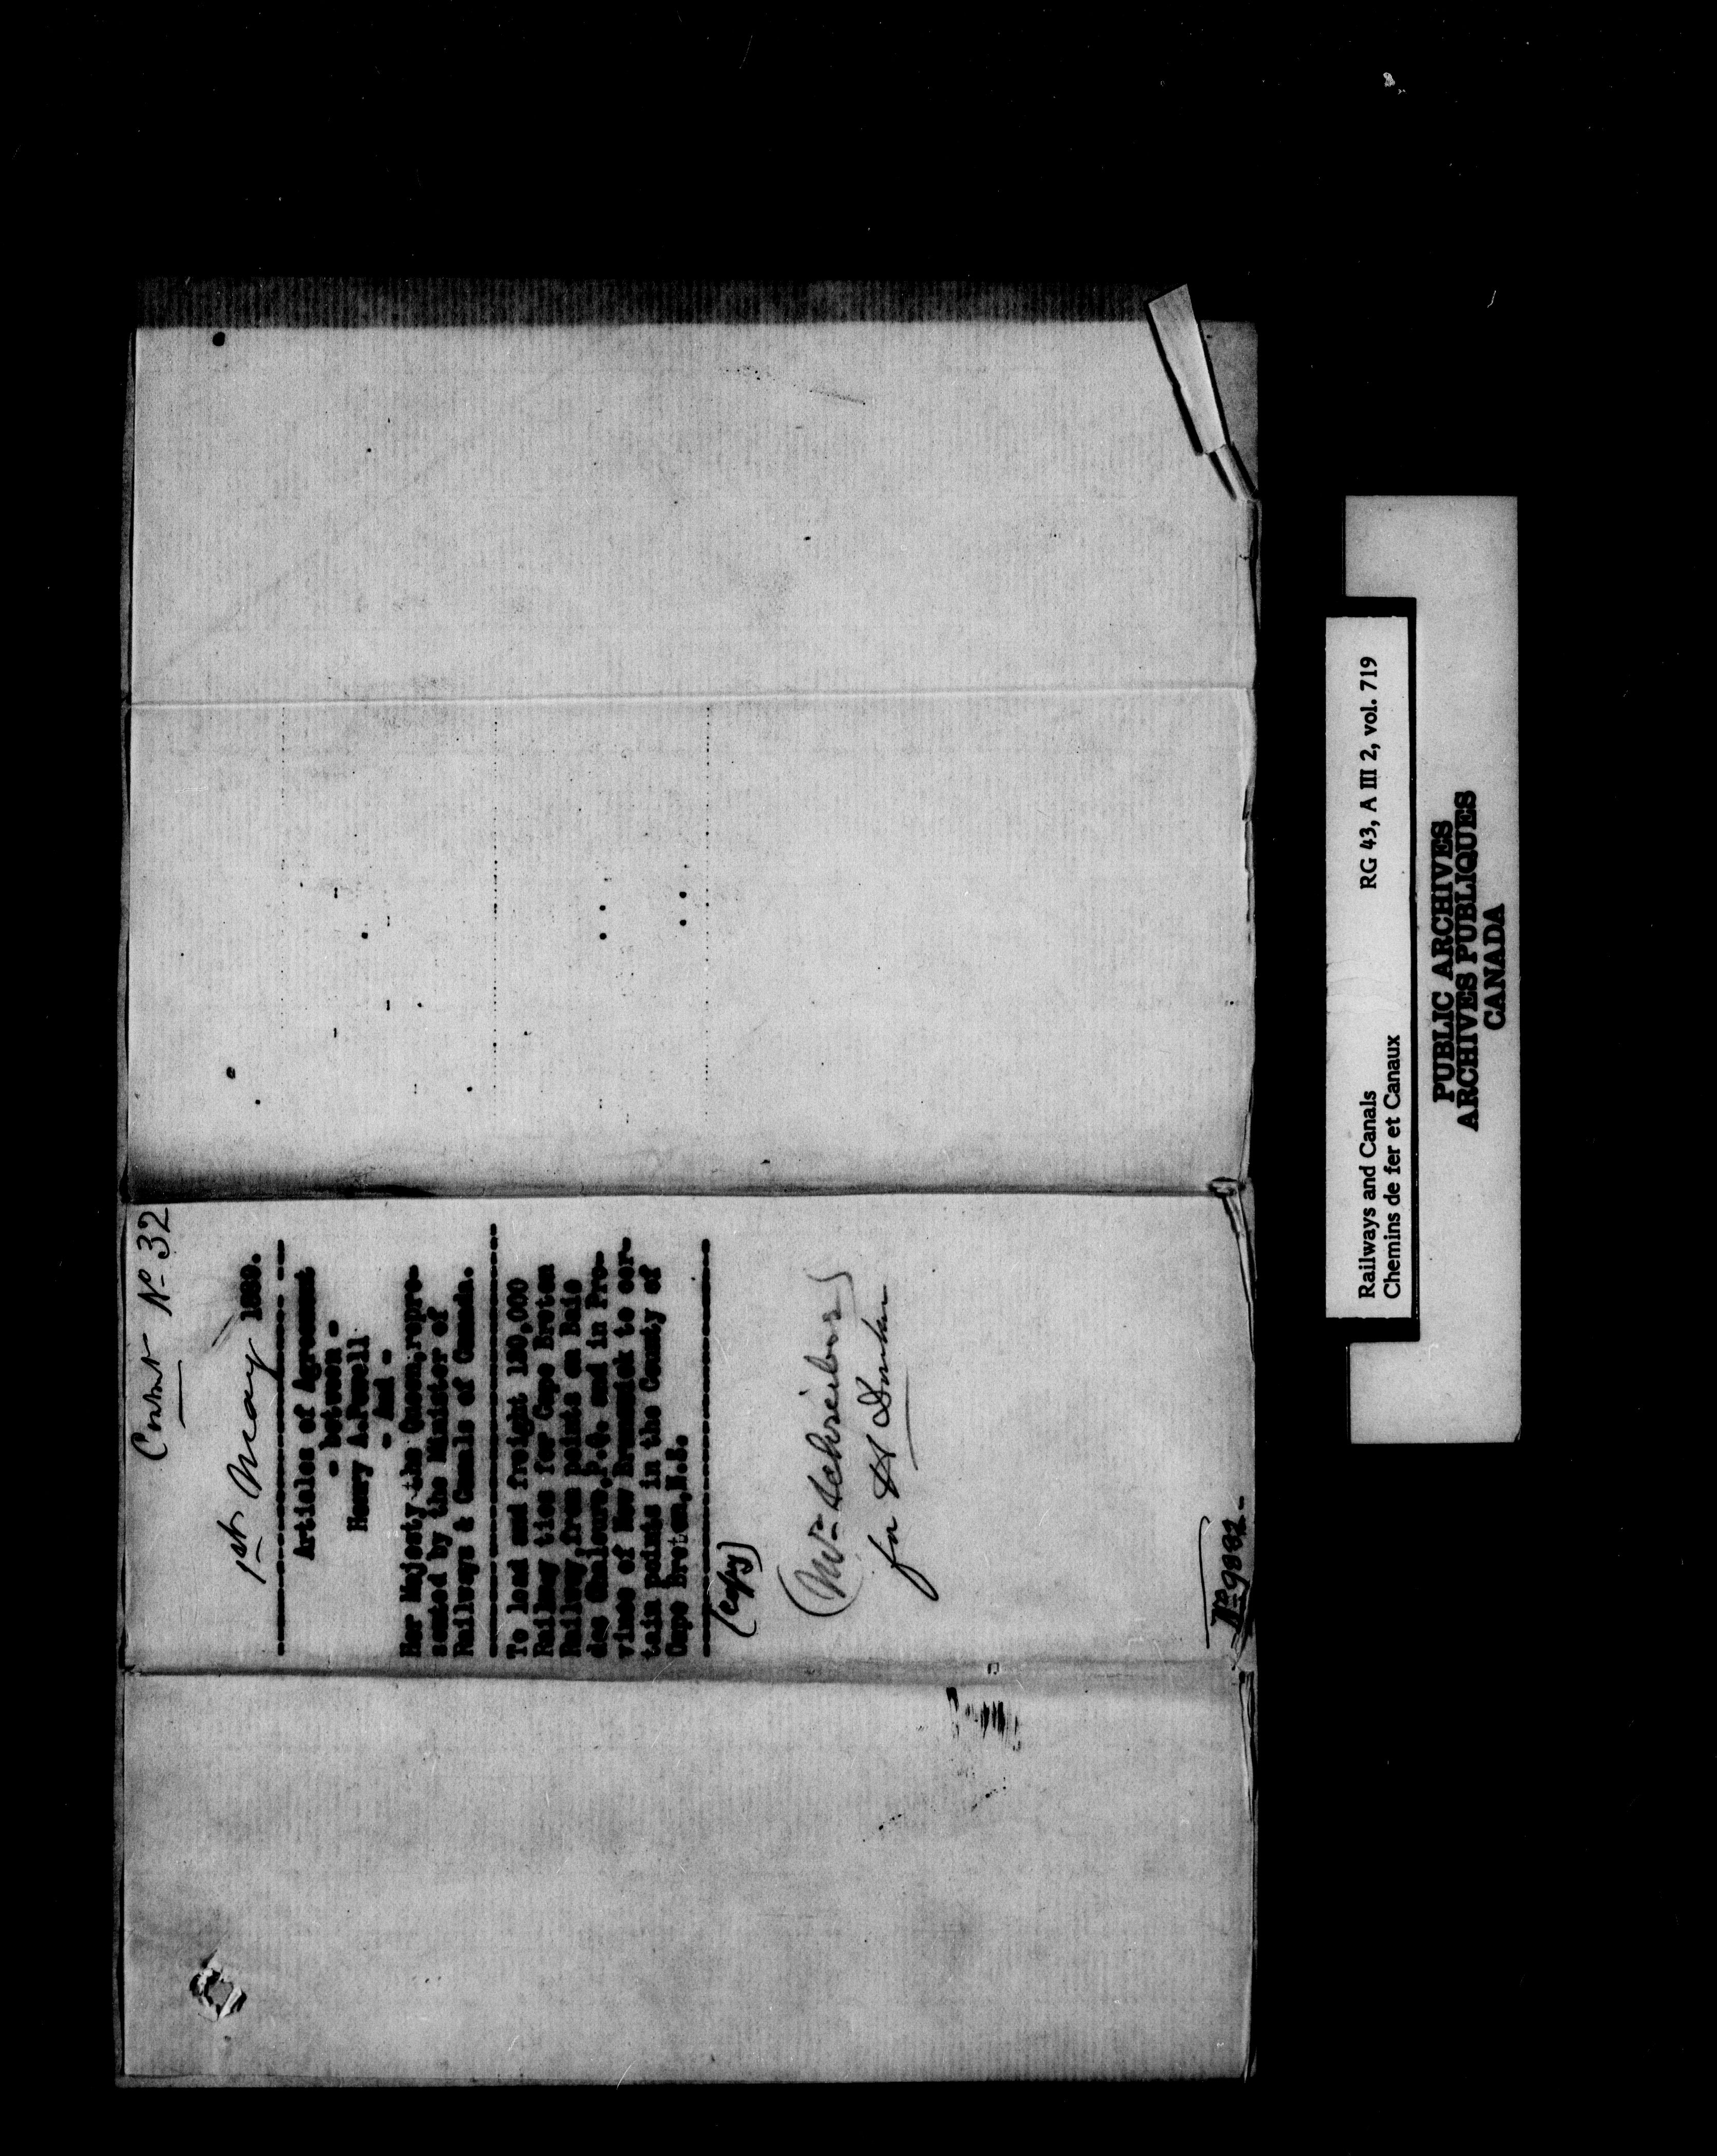 Cont Nº 32
1st May 1889.
Articles of Agreement
- between -
Henry A.Powell
- And -
Her Majesty the Queen,repre-
sented by the Minister of
Railways & Canals of Canada.
To load and freight 130,000
Railway ties for Cape Breton
Railway,from points on Baie
des Chaleurs,P.Q. and in Pro-
vince of New Brunswick to cer-
tain points in the County of
Cape Breton,N.S.
(copy)
(Mr Schreiber)
for
Nº 9882
Railways and Canals RG 43, A III 2, vol. 719
Chemins de fer et Canaux
PUBLIC ARCHIVES
ARCHIVES PUBLIQUES
CANADA